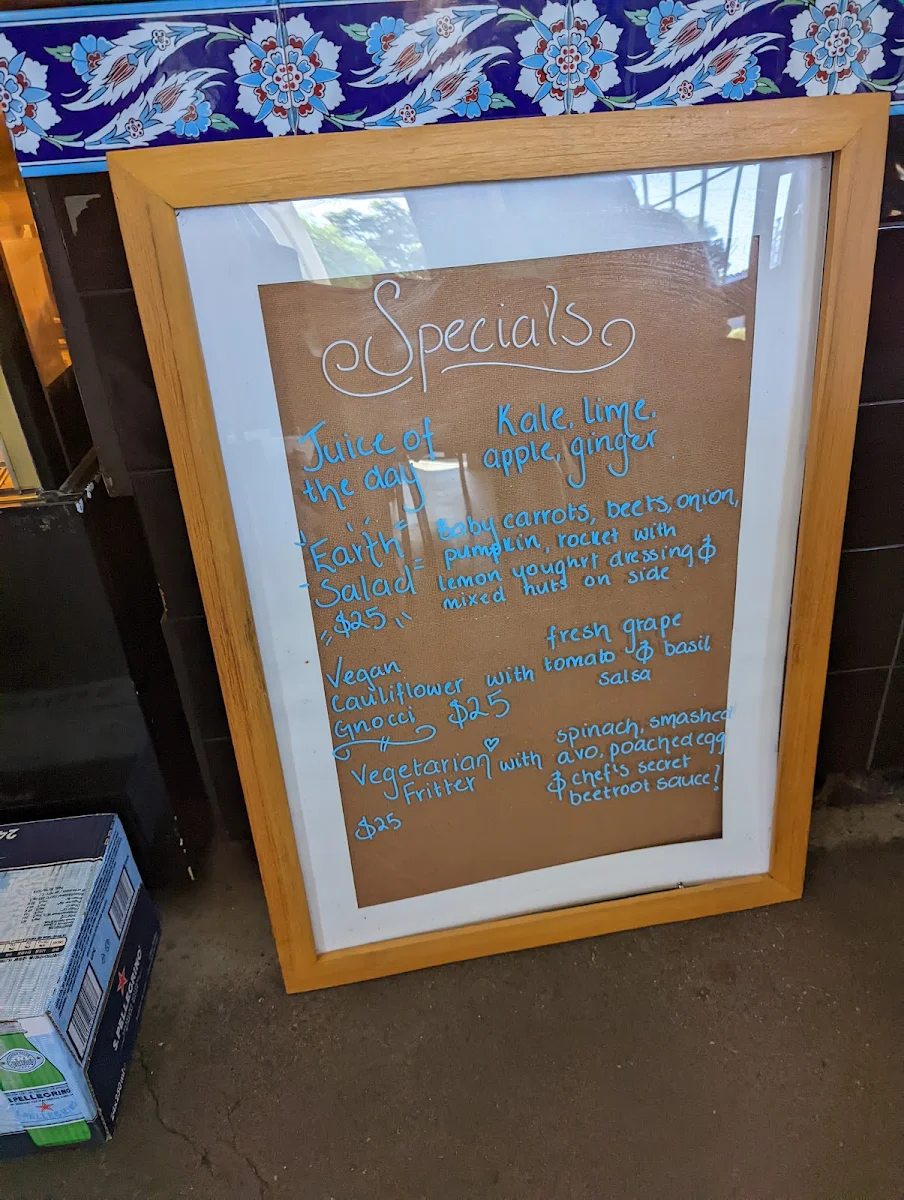 Specials
Juice of
the day
Kale, lime,
apple, ginger
"Earth"
Salad
$25
Baby carrots, beets, onion,
pumpkin, rocket with
lemon youghrt dressing &
mixed nuts on side
Vegan
Cauliflower with
Gnocci $25
fresh grape
tomato & basil
salsa
Vegetarian with
Fritter
$25
spinach, smashed
avo, poached egg
& chef's secret
beetroot sauce!
24
S.PELLEGRINO
S.PELLEGRINO